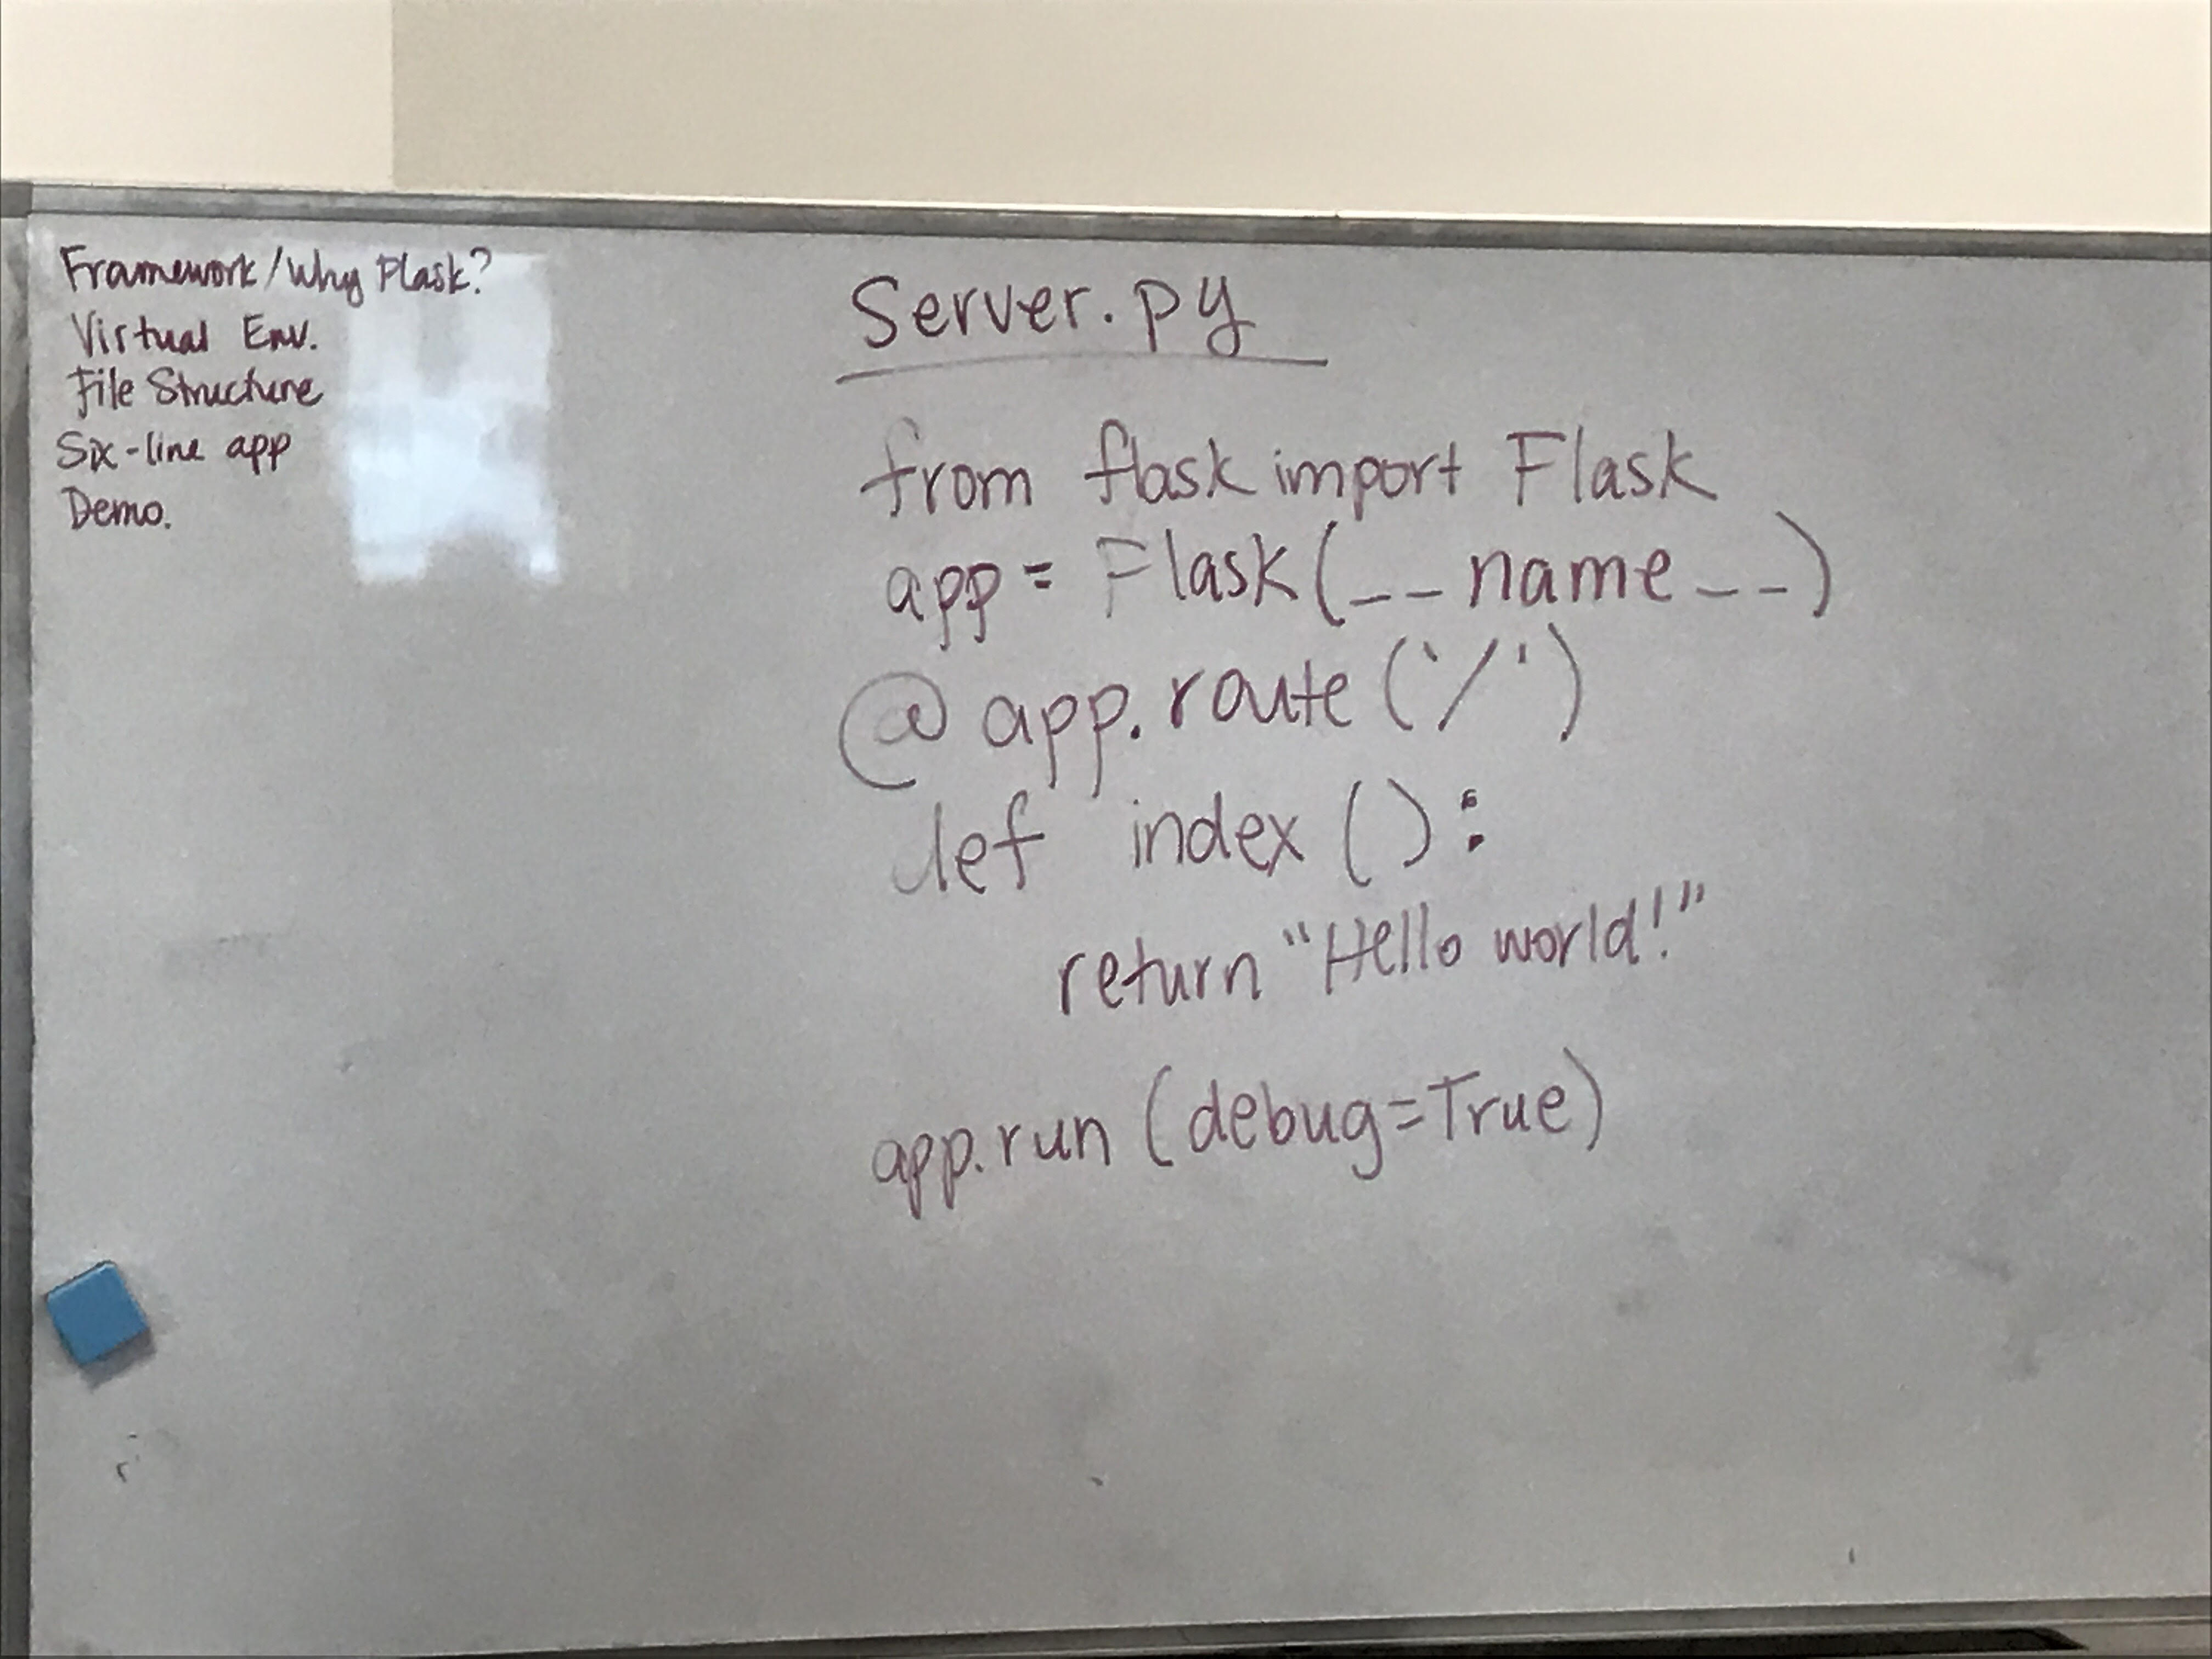 Framework/Why Flask?
Virtual Env.
File Structure
Six-line app
Demo.
Server.py
from flask import Flask
app = Flask(__name__)
@app.route('/')
def index():
return "Hello world!"
app.run(debug=True)